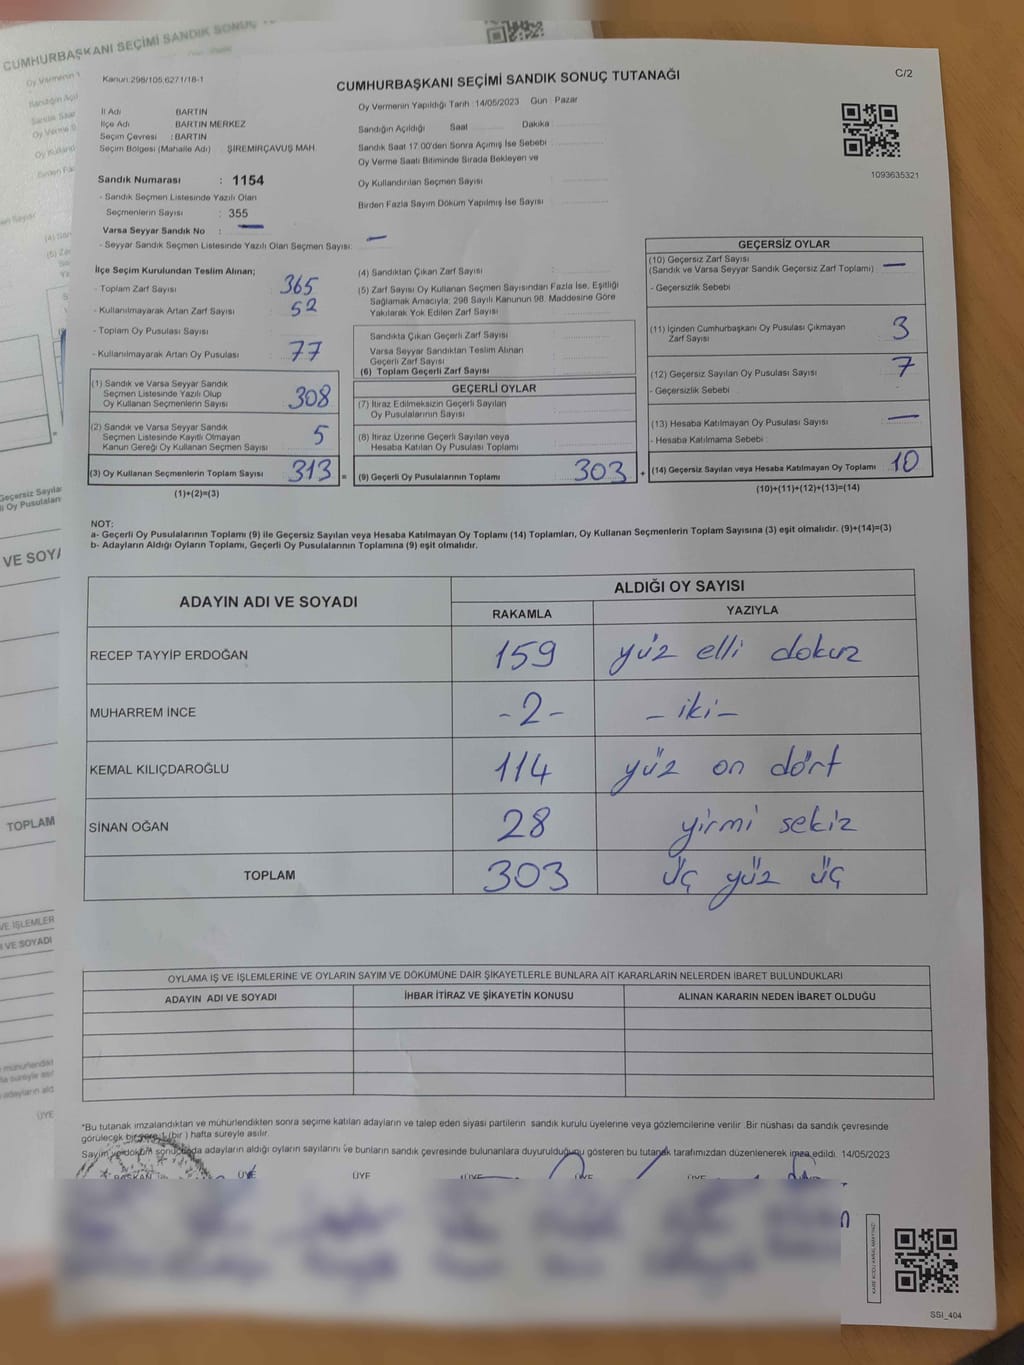 CUMHURBAŞKANI SEÇİMİ SANDIK SONUÇ
Kanun:298/105,6271/18-1
CUMHURBAŞKANI SEÇİMİ SANDIK SONUÇ TUTANAĞI
C/2
İl Adı BARTIN
İlçe Adı BARTIN MERKEZ
Seçim Çevresi : BARTIN
Seçim Bölgesi (Mahalle Adı) ŞİREMİRÇAVUŞ MAH.
Sandık Numarası : 1154
- Sandık Seçmen Listesinde Yazılı Olan
Seçmenlerin Sayısı : 355
Varsa Seyyar Sandık No : —
- Seyyar Sandık Seçmen Listesinde Yazılı Olan Seçmen Sayısı: —
Oy Vermenin Yapıldığı Tarih :14/05/2023 Gün : Pazar
Sandığın Açıldığı Saat Dakika
Sandık Saat 17.00'den Sonra Açımış İse Sebebi
Oy Verme Saati Bitiminde Sırada Bekleyen ve
Oy Kullandırılan Seçmen Sayısı
Birden Fazla Sayım Döküm Yapılmış İse Sayısı
1093635321
İlçe Seçim Kurulundan Teslim Alınan;
- Toplam Zarf Sayısı 365
- Kullanılmayarak Artan Zarf Sayısı 52
- Toplam Oy Pusulası Sayısı
- Kullanılmayarak Artan Oy Pusulası 77
(1) Sandık ve Varsa Seyyar Sandık
Seçmen Listesinde Yazılı Olup
Oy Kullanan Seçmenlerin Sayısı 308
(2) Sandık ve Varsa Seyyar Sandık
Seçmen Listesinde Kayıtlı Olmayan
Kanun Gereği Oy Kullanan Seçmen Sayısı 5
(3) Oy Kullanan Seçmenlerin Toplam Sayısı 313 =
(1)+(2)=(3)
(4) Sandıktan Çıkan Zarf Sayısı
(5) Zarf Sayısı Oy Kullanan Seçmen Sayısından Fazla İse, Eşitliği
Sağlamak Amacıyla; 298 Sayılı Kanunun 98. Maddesine Göre
Yakılarak Yok Edilen Zarf Sayısı
Sandıkta Çıkan Geçerli Zarf Sayısı
Varsa Seyyar Sandıktan Teslim Alınan
Geçerli Zarf Sayısı
(6) Toplam Geçerli Zarf Sayısı
GEÇERLİ OYLAR
(7) İtiraz Edilmeksizin Geçerli Sayılan
Oy Pusulalarının Sayısı
(8) İtiraz Üzerine Geçerli Sayılan veya
Hesaba Katılan Oy Pusulası Toplamı
(9) Geçerli Oy Pusulalarının Toplamı 303 +
GEÇERSİZ OYLAR
(10) Geçersiz Zarf Sayısı
(Sandık ve Varsa Seyyar Sandık Geçersiz Zarf Toplamı) —
- Geçersizlik Sebebi
(11) İçinden Cumhurbaşkanı Oy Pusulası Çıkmayan
Zarf Sayısı 3
(12) Geçersiz Sayılan Oy Pusulası Sayısı 7
- Geçersizlik Sebebi
(13) Hesaba Katılmayan Oy Pusulası Sayısı —
- Hesaba Katılmama Sebebi
(14) Geçersiz Sayılan veya Hesaba Katılmayan Oy Toplamı 10
(10)+(11)+(12)+(13)=(14)
NOT:
a- Geçerli Oy Pusulalarının Toplamı (9) ile Geçersiz Sayılan veya Hesaba Katılmayan Oy Toplamı (14) Toplamları, Oy Kullanan Seçmenlerin Toplam Sayısına (3) eşit olmalıdır. (9)+(14)=(3)
b- Adayların Aldığı Oyların Toplamı, Geçerli Oy Pusulalarının Toplamına (9) eşit olmalıdır.
ADAYIN ADI VE SOYADI
ALDIĞI OY SAYISI
RAKAMLA YAZIYLA
RECEP TAYYİP ERDOĞAN 159 yüz elli dokuz
MUHARREM İNCE -2- - iki -
KEMAL KILIÇDAROĞLU 114 yüz on dört
SİNAN OĞAN 28 yirmi sekiz
TOPLAM 303 üç yüz üç
OYLAMA İŞ VE İŞLEMLERİNE VE OYLARIN SAYIM VE DÖKÜMÜNE DAİR ŞİKAYETLERLE BUNLARA AİT KARARLARIN NELERDEN İBARET BULUNDUKLARI
ADAYIN ADI VE SOYADI İHBAR İTİRAZ VE ŞİKAYETİN KONUSU ALINAN KARARIN NEDEN İBARET OLDUĞU
*Bu tutanak imzalandıktan ve mühürlendikten sonra seçime katılan adayların ve talep eden siyasi partilerin sandık kurulu üyelerine veya gözlemcilerine verilir .Bir nüshası da sandık çevresinde
görülecek bir yere 1 (bir ) hafta süreyle asılır.
Sayım ve döküm sonucunda adayların aldığı oyların sayılarını ve bunların sandık çevresinde bulunanlara duyurulduğunu gösteren bu tutanak tarafımızdan düzenlenerek imza edildi. 14/05/2023
BAŞKAN ÜYE ÜYE ÜYE ÜYE ÜYE
KARE KODU KARALAMAYINIZ!
SSİ_404